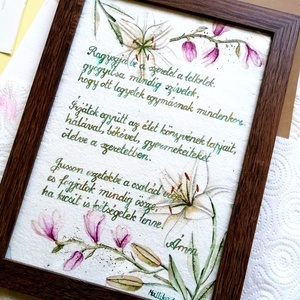 Ragyogja be a szeretet a lelketek,
gyógyítsa mindig szívetek,
hogy ott legyetek egymásnak mindenkor.
Írjátok együtt az élet könyvének lapjait,
hálával, békével, gyermekeiteket
ölelve a szeretetben.
Jusson eszetekbe a család
és fogjatok mindig össze,
ha kicsit is kétségetek lenne!
Ámen